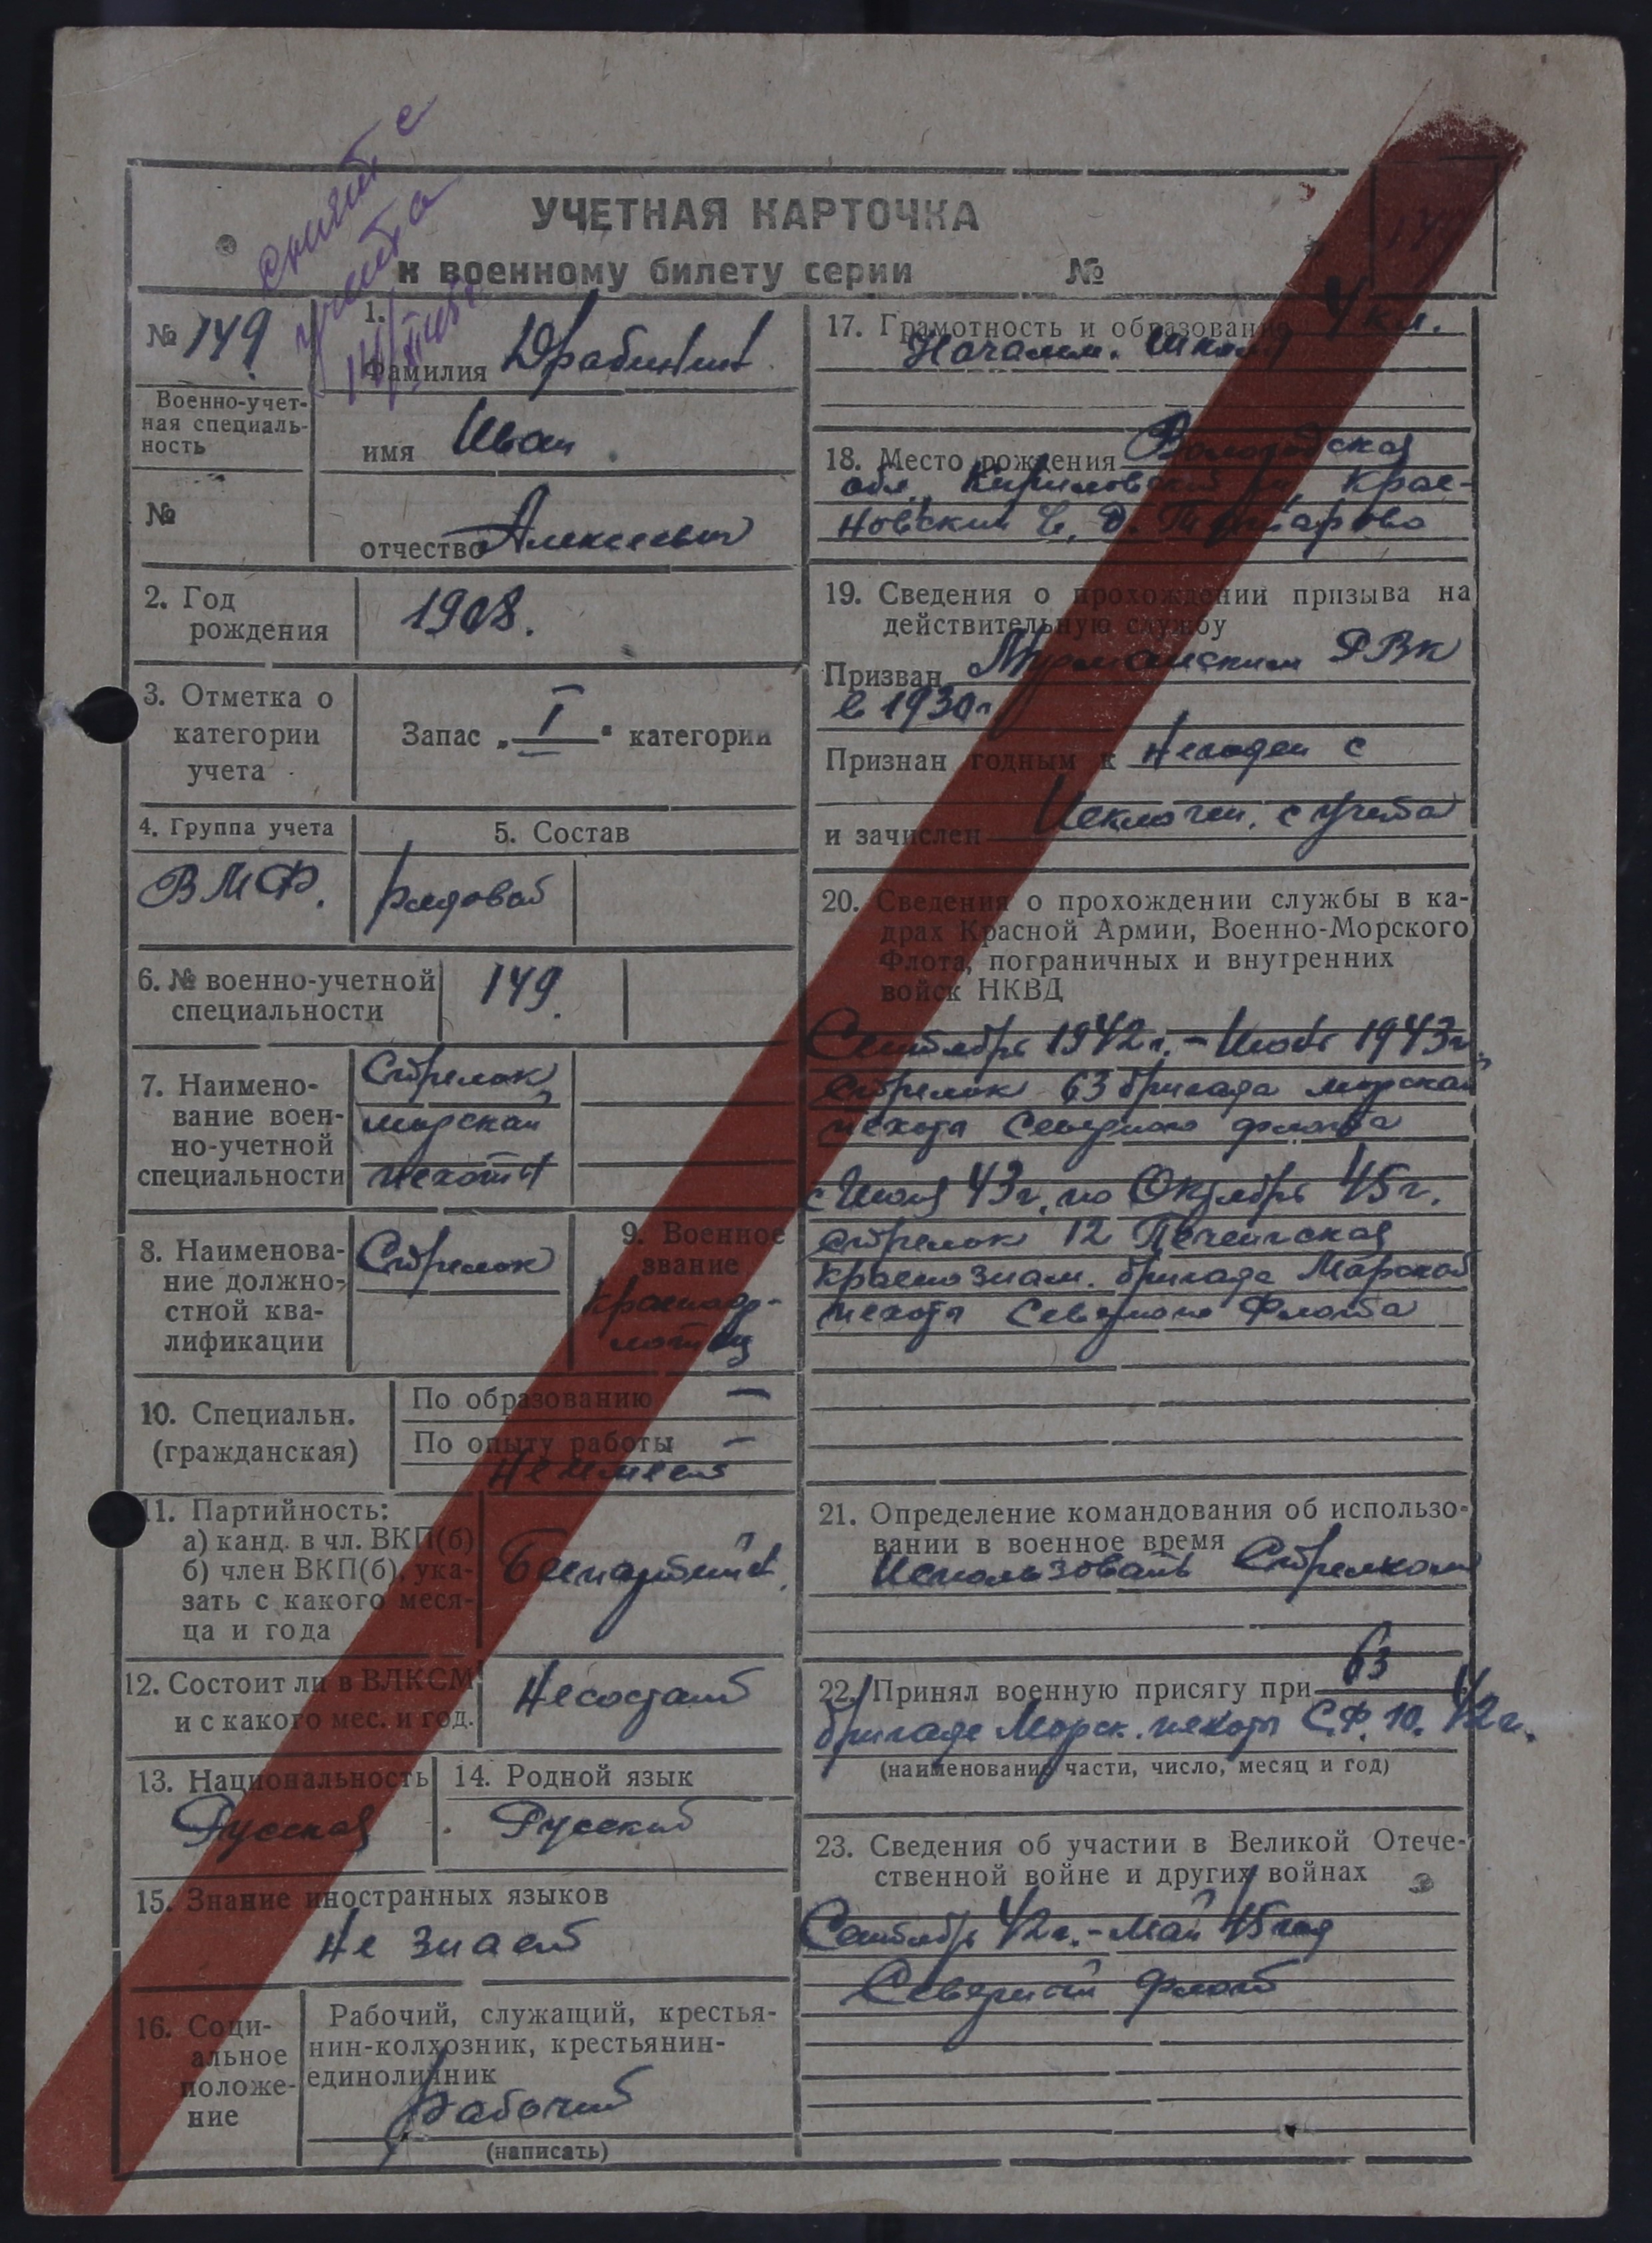 снят с
учета
УЧЕТНАЯ КАРТОЧКА
к военному билету серии №
№ 149
Военно-учет-
ная специаль-
ность
№
1.
Фамилия
имя Иван
отчество Алексеевич
2. Год
рождения
1908.
3. Отметка о
категории
учета
Запас „I“ категории
4. Группа учета
ВМФ.
5. Состав
рядовой
6. № военно-учетной
специальности
149.
7. Наимено-
вание воен-
но-учетной
специальности
Стрелок
морской
пехоты
8. Наименова-
ние должно-
стной ква-
лификации
Стрелок
9. Военное
звание
краснофлотец
10. Специальн.
(гражданская)
По образованию —
По опыту работы —
Не имеет
11. Партийность:
а) канд. в чл. ВКП(б)
б) член ВКП(б), ука-
зать с какого меся-
ца и года
Беспартийн.
12. Состоит ли в ВЛКСМ
и с какого мес. и год.
Не состоит
13. Национальность
Русская
14. Родной язык
Русский
15. Знание иностранных языков
Не знает
16. Соци-
альное
положе-
ние
Рабочий, служащий, крестья-
нин-колхозник, крестьянин-
единоличник
Рабочий
(написать)
17. Грамотность и образование 4 кл.
Началь. школы
18. Место рождения Вологодская
обл., Кирилловский
д.
19. Сведения о прохождении призыва на
действительную службу
Призван Мурманским РВК
в 1930г
Признан годным к Негоден с
и зачислен Исключен. с учета
20. Сведения о прохождении службы в ка-
драх Красной Армии, Военно-Морского
Флота, пограничных и внутренних
войск НКВД
Сентябрь 1942г. – Июль 1943г.
стрелок 63 бригада морской
пехоты Северного флота
с Июля 43г. по Октябрь 45г.
стрелок 12 Печенгская
краснознам. бригада Морской
пехоты Северного Флота
21. Определение командования об использо-
вании в военное время
Использовать Стрелком
22. Принял военную присягу при 63
бригаде Морск. пехоты С.Ф. 10. 42г.
(наименование части, число, месяц и год)
23. Сведения об участии в Великой Отече-
ственной войне и других войнах
Сентябрь 42г. – Май 45 год
Северный флот